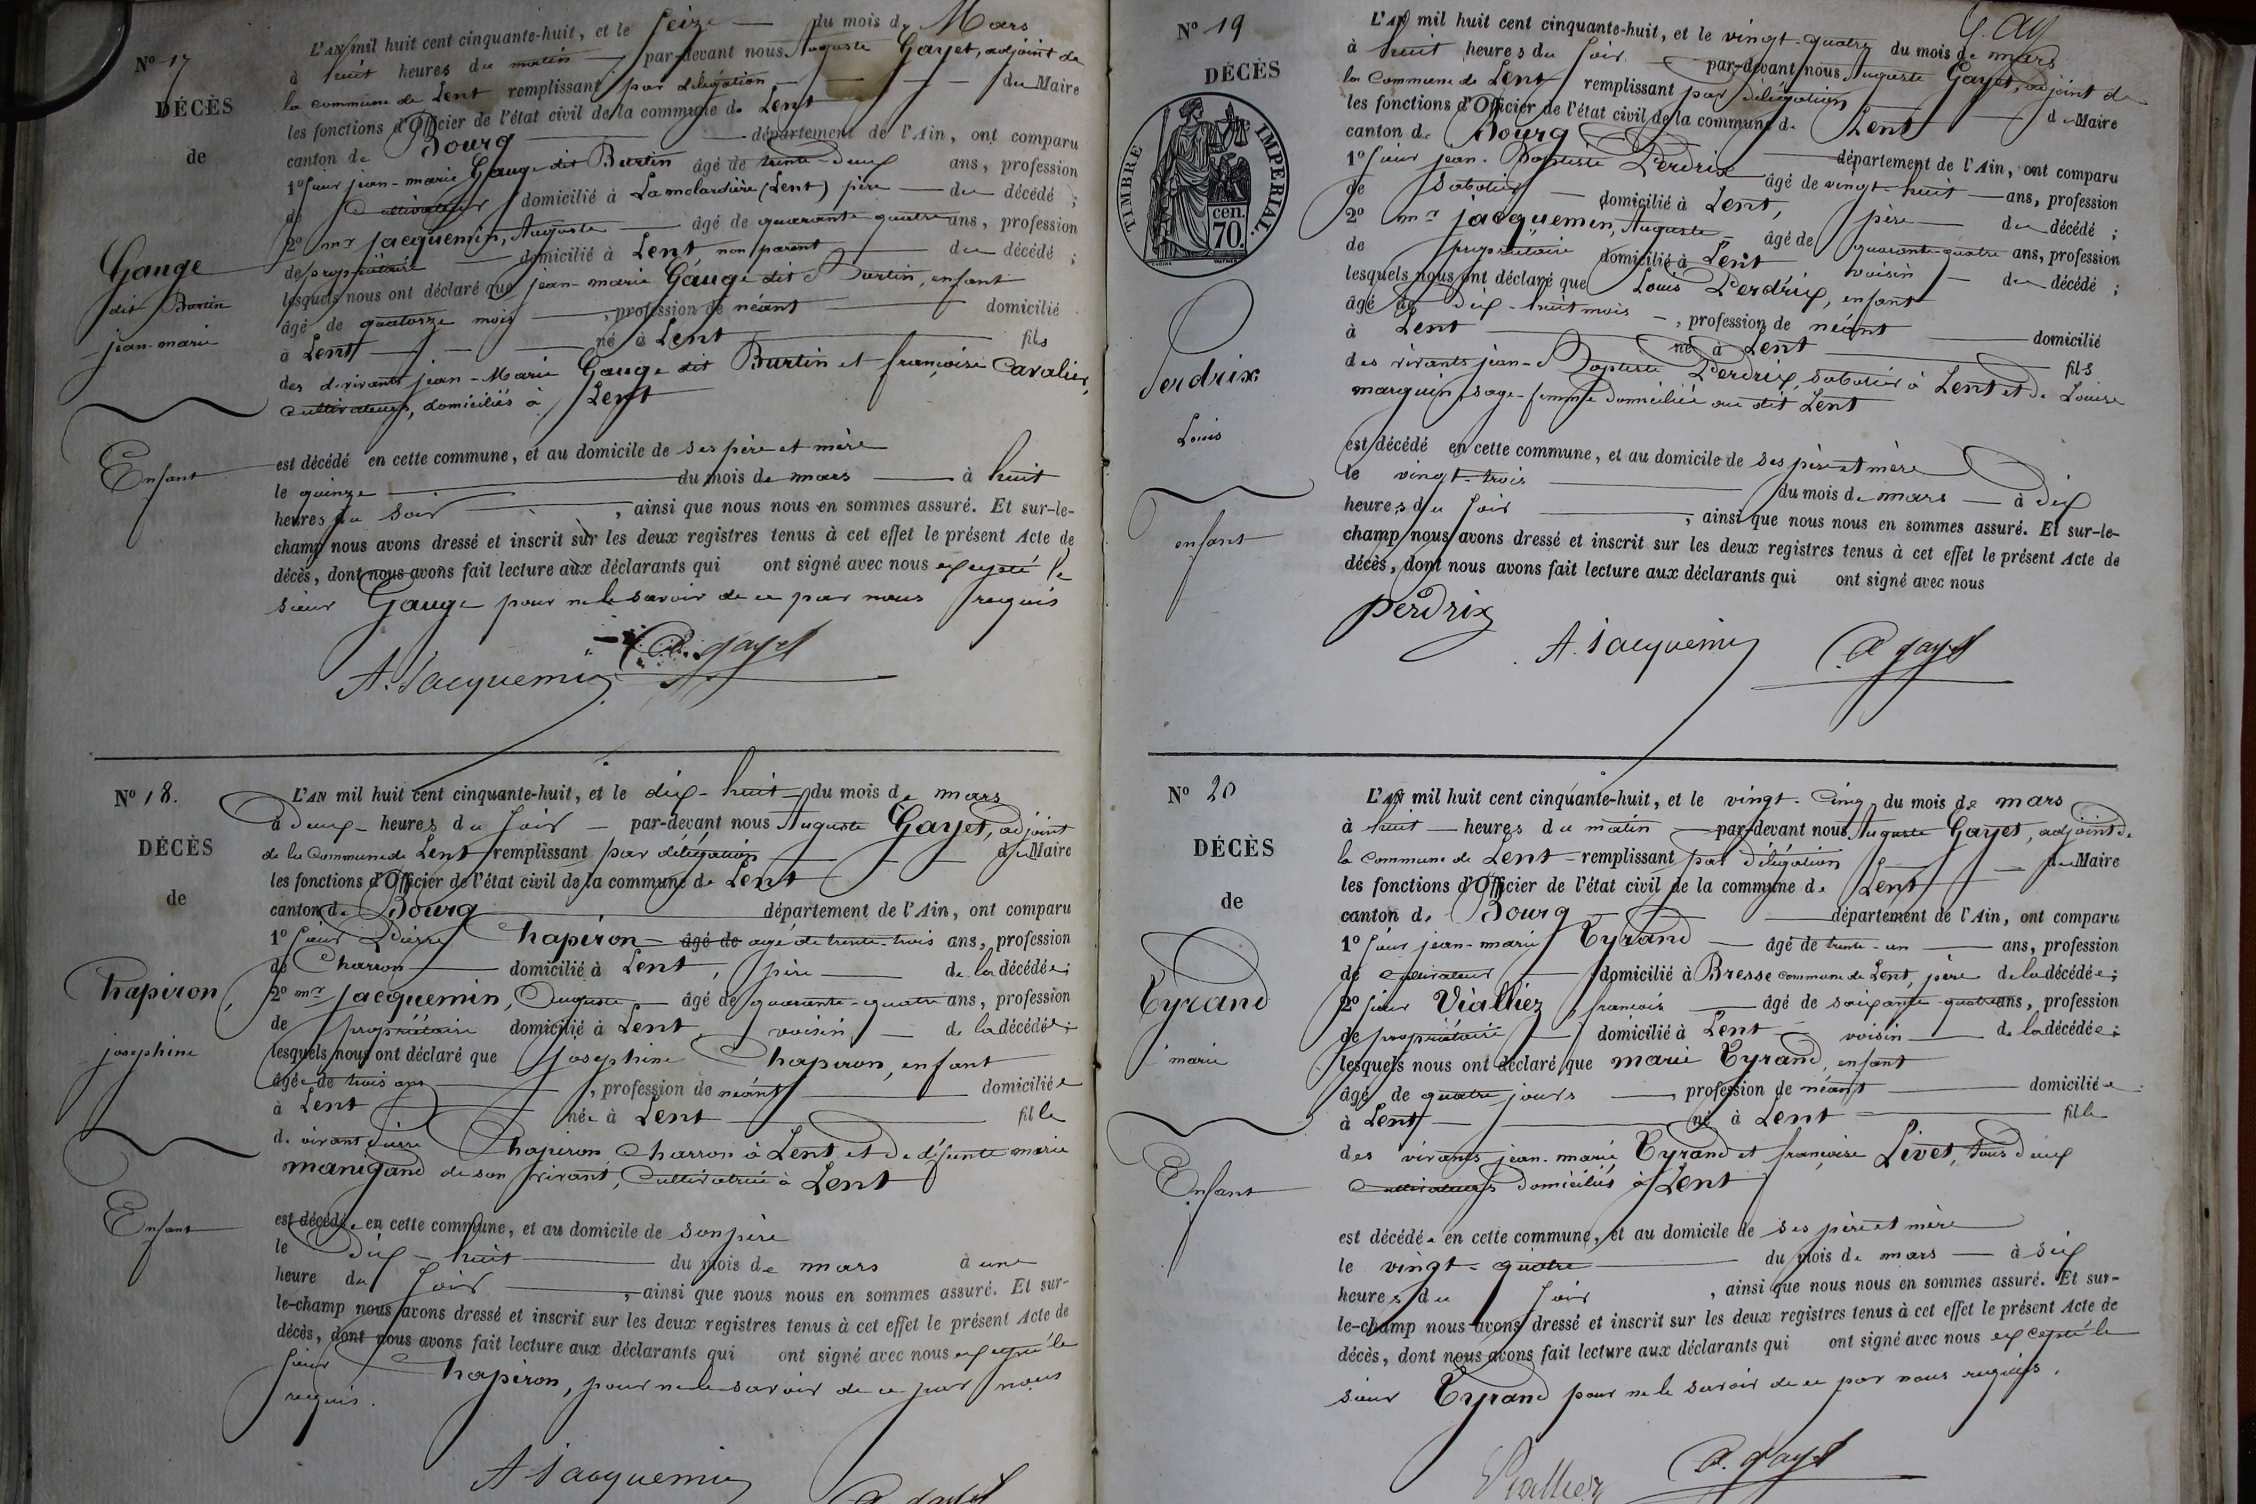 Nº 17
DÉCÈS
de
Gauge
dit Burtin
jean-marie
Enfant
L'AN mil huit cent cinquante-huit, et le seize du mois de Mars
à huit heures du matin par-devant nous Auguste Gayet, adjoint de
la commune de Lent remplissant par délégation du Maire
les fonctions d'Officier de l'état civil de la commune de Lent
canton de Bourg département de l'Ain, ont comparu
1º sieur jean-marie Gauge dit Burtin âgé de trente-deux ans, profession
de cultivateur domicilié à Lamolardière (Lent) père du décédé ;
2º mr jacquemin, Auguste âgé de quarante quatre ans, profession
de propriétaire domicilié à Lent, non parent du décédé ;
lesquels nous ont déclaré que jean-marie Gauge dit Burtin, enfant
âgé de quatorze mois , profession de néant domicilié
à Lent né à Lent fils
des vivants jean-Marie Gauge dit Burtin et françoise Cavalier,
cultivateurs, domiciliés à Lent
est décédé en cette commune, et au domicile de ses père et mère
le quinze du mois de mars à huit
heures du soir , ainsi que nous nous en sommes assuré. Et sur-le-
champ nous avons dressé et inscrit sur les deux registres tenus à cet effet le présent Acte de
décès, dont nous avons fait lecture aux déclarants qui ont signé avec nous excepté le
sieur Gauge pour ne le savoir de ce par nous requis
A. Jacquemin
A. Gayet
Nº 18.
DÉCÈS
de
Chapiron
josephine
Enfant
L'AN mil huit cent cinquante-huit, et le dix-huit du mois de mars
à deux heures du soir par-devant nous Auguste Gayet, adjoint
de la Commune de Lent remplissant par délégation du Maire
les fonctions d'Officier de l'état civil de la commune de Lent
canton de Bourg département de l'Ain, ont comparu
1º sieur Pierre Chapiron âgé de agé de trente-trois ans, profession
de Charron domicilié à Lent, père de la décédée ;
2º mr jacquemin, Auguste âgé de quarante-quatre ans, profession
de propriétaire domicilié à Lent, voisin de la décédée ;
lesquels nous ont déclaré que josephine Chapiron, enfant
âgée de trois ans , profession de néant domiciliée
à Lent née à Lent fille
de vivant Pierre Chapiron Charron à Lent et de défunte marie
manigand de son vivant, Cultivatrice à Lent
est décédée en cette commune, et au domicile de son père
le Dix-huit du mois de mars à une
heure du soir , ainsi que nous nous en sommes assuré. Et sur-
le-champ nous avons dressé et inscrit sur les deux registres tenus à cet effet le présent Acte de
décès, dont nous avons fait lecture aux déclarants qui ont signé avec nous excepté le
sieur Chapiron, pour ne le savoir de ce par nous
requis.
A Jacquemin
A. Gayet
Nº 19
DÉCÈS
TIMBRE IMPERIAL.
cen.
70.
Perdrix
Louis
enfant
G. Ay
L'AN mil huit cent cinquante-huit, et le vingt-quatre du mois de mars
à huit heures du soir par-devant nous Auguste Gayet, adjoint de
la Commune de Lent remplissant par délégation du Maire
les fonctions d'Officier de l'état civil de la commune de Lent
canton de Bourg département de l'Ain, ont comparu
1º sieur jean-Baptiste Perdrix âgé de vingt-huit ans, profession
de sabotier domicilié à Lent, père du décédé ;
2º mr jacquemin, Auguste âgé de quarante-quatre ans, profession
de propriétaire domicilié à Lent voisin du décédé ;
lesquels nous ont déclaré que Louis Perdrix, enfant
âgé de dix-huit mois , profession de néant domicilié
à Lent né à Lent fils
des vivants jean-Baptiste Perdrix, sabotier à Lent et de Louise
marguin, sage-femme domiciliée au dit Lent
est décédé en cette commune, et au domicile de ses père et mère
le vingt-trois du mois de mars à dix
heures du soir , ainsi que nous nous en sommes assuré. Et sur-le-
champ nous avons dressé et inscrit sur les deux registres tenus à cet effet le présent Acte de
décès, dont nous avons fait lecture aux déclarants qui ont signé avec nous
perdrix
A. Jacquemin
A Gayet
Nº 20
DÉCÈS
de
Tyrand
marie
Enfant
L'AN mil huit cent cinquante-huit, et le vingt-cinq du mois de mars
à huit heures du matin par-devant nous Auguste Gayet, adjoint de
la Commune de Lent remplissant par délégation du Maire
les fonctions d'Officier de l'état civil de la commune de Lent
canton de Bourg département de l'Ain, ont comparu
1º sieur jean-marie Tyrand âgé de trente-un ans, profession
de cultivateur domicilié à Bresse commune de Lent, père de la décédée ;
2º sieur Vialliez, françois âgé de soixante quatre ans, profession
de propriétaire domicilié à Lent voisin de la décédée ;
lesquels nous ont déclaré que marie Tyrand, enfant
âgé de quatre jours , profession de néant domiciliée
à Lent né à Lent fille
des vivants jean-marie Tyrand et françoise Livet, tous deux
cultivateurs domiciliés à Lent
est décédée en cette commune, et au domicile de ses père et mère
le vingt-quatre du mois de mars à six
heures du soir , ainsi que nous nous en sommes assuré. Et sur-
le-champ nous avons dressé et inscrit sur les deux registres tenus à cet effet le présent Acte de
décès, dont nous avons fait lecture aux déclarants qui ont signé avec nous excepté le
sieur Tyrand pour ne le savoir de ce par nous requis.
Viallier
A. Gayet